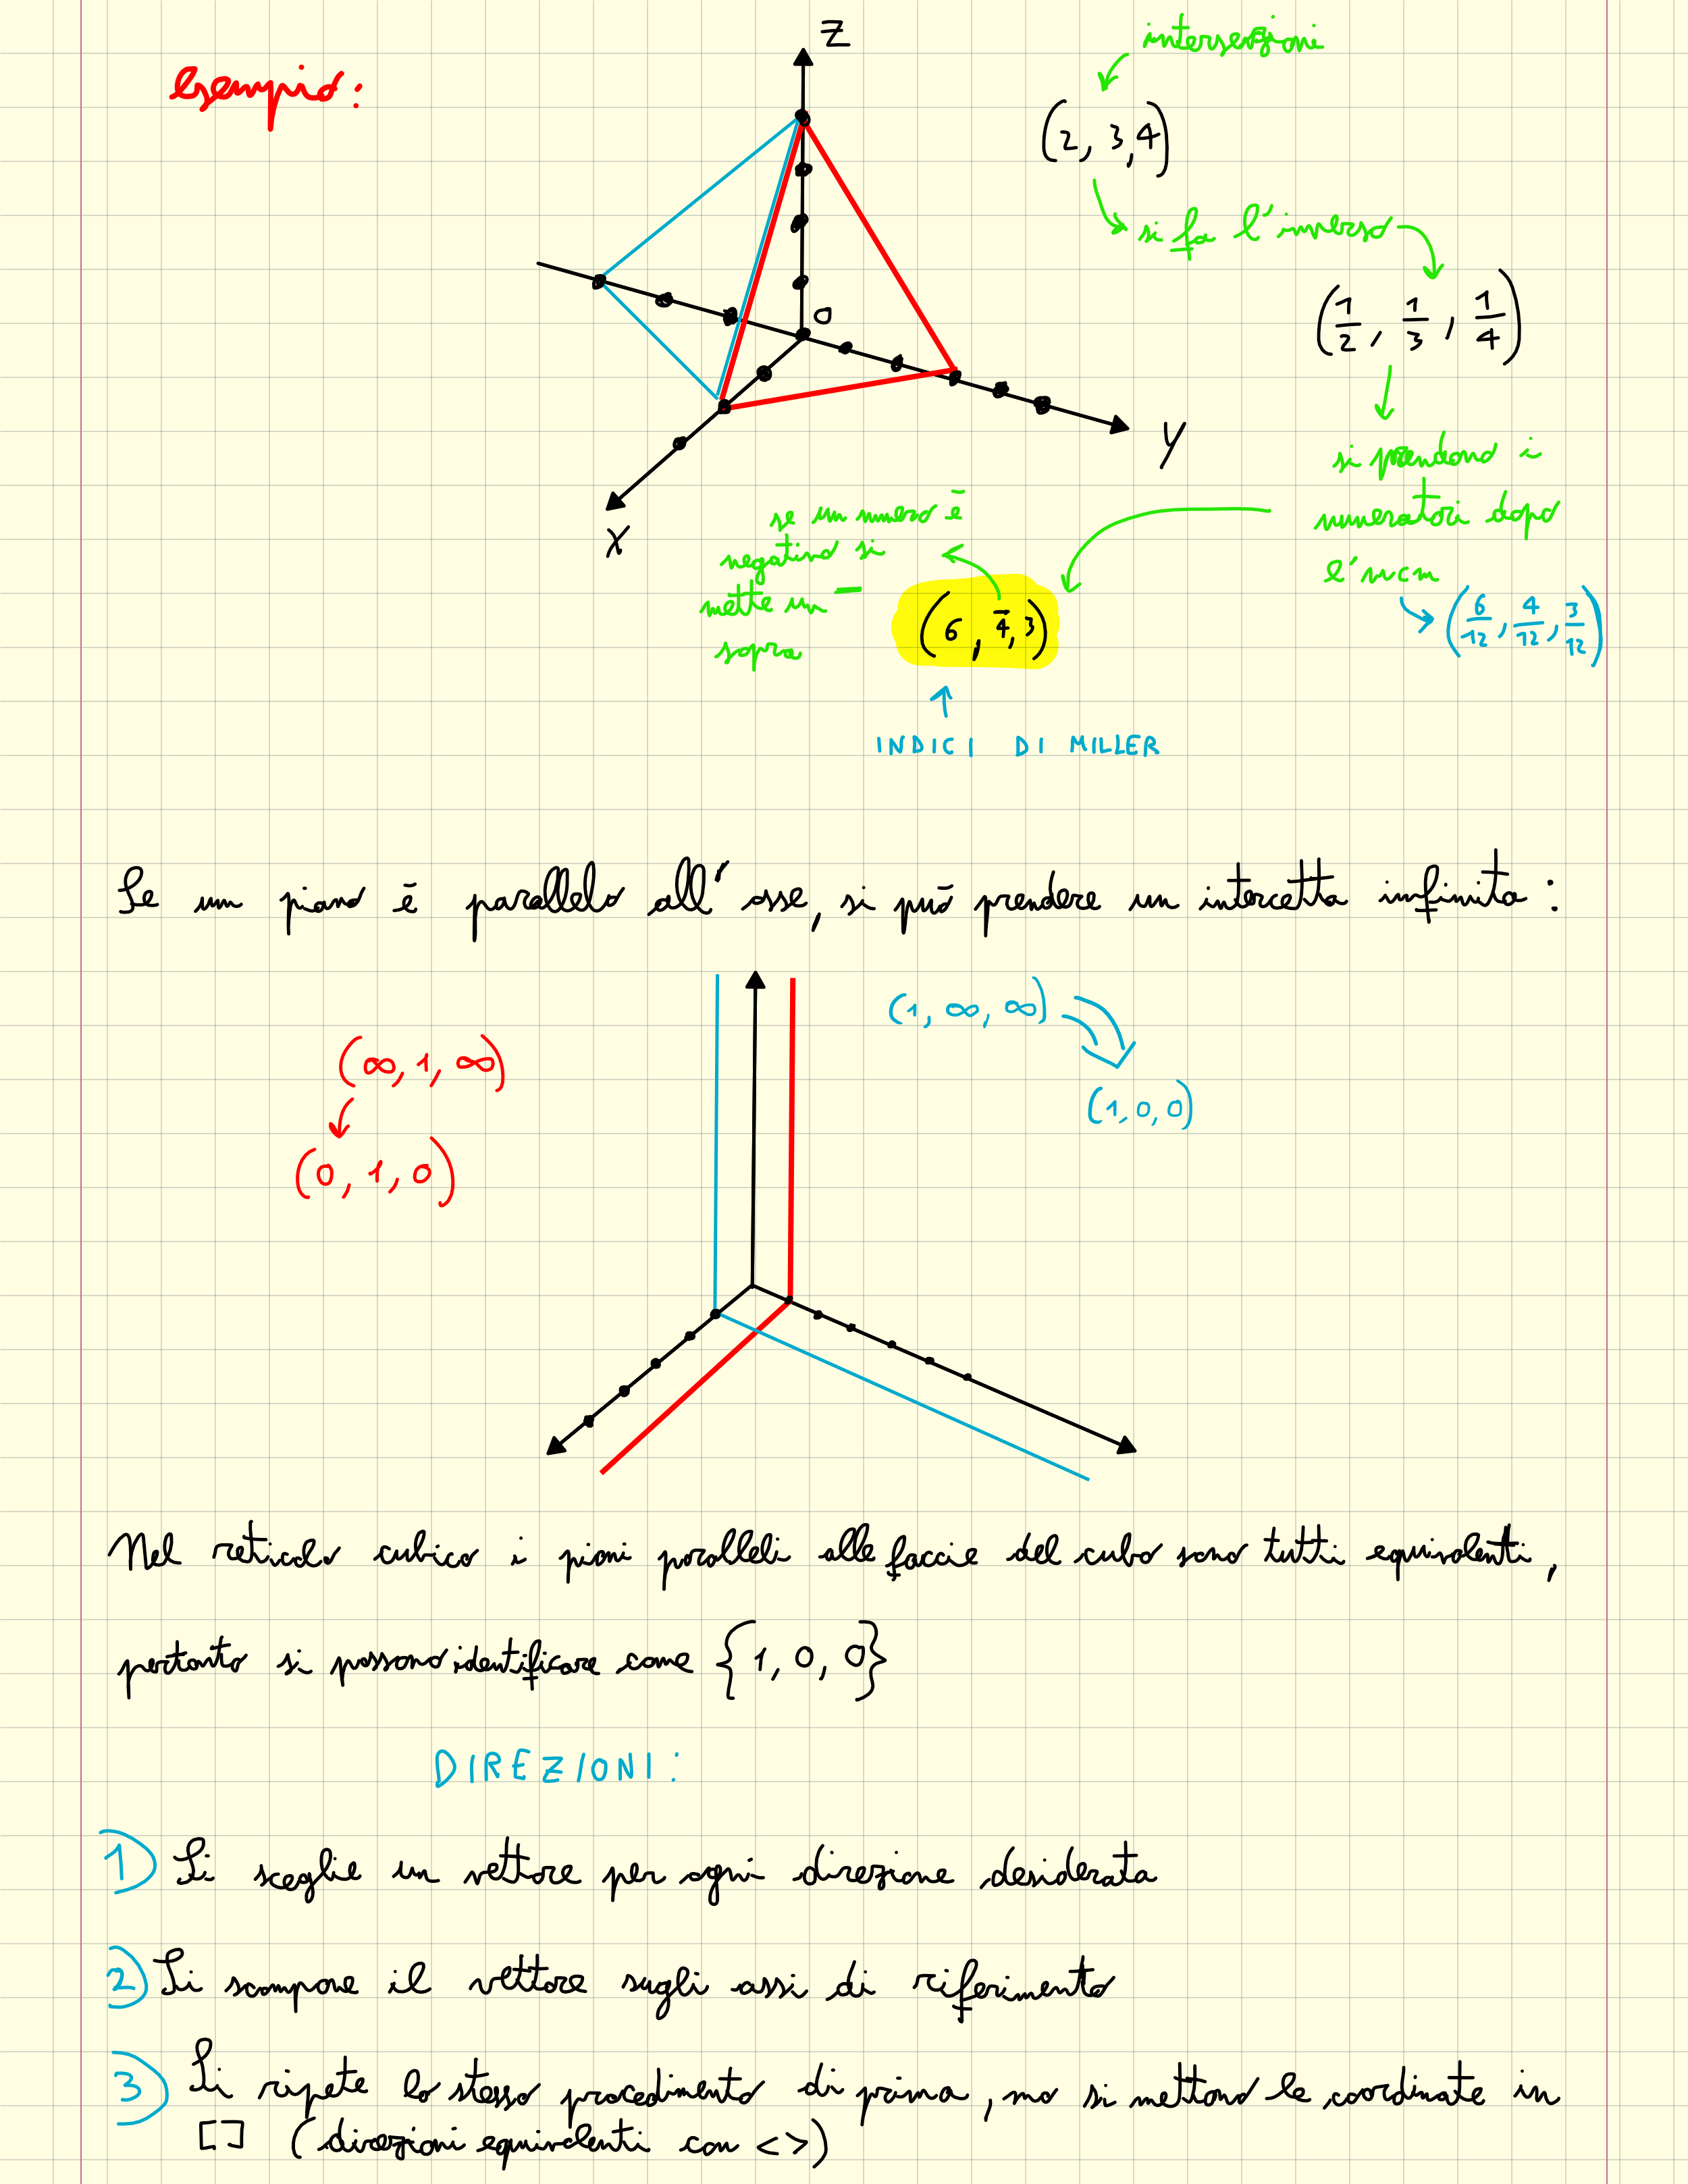 esempio:
z
intersezioni
(2, 3, 4)
si fa l'inverso
O
(1/2, 1/3, 1/4)
y
x
si prendono i
numeratori dopo
l'mcm
(6/12, 4/12, 3/12)
se un numero è
negativo si
mette un —
sopra
(6, 4̄, 3)
INDICI DI MILLER
Se un piano è parallelo all' asse, si può prendere un intercetta infinita:
(1, ∞, ∞)
(∞, 1, ∞)
(1, 0, 0)
(0, 1, 0)
Nel reticolo cubico i piani paralleli alle faccie del cubo sono tutti equivalenti,
pertanto si possono identificare come {1, 0, 0}
DIREZIONI:
1) Si sceglie un vettore per ogni direzione desiderata
2) Si scompone il vettore sugli assi di riferimento
3) Si ripete lo stesso procedimento di prima, ma si mettono le coordinate in
[] (direzioni equivalenti con <>)